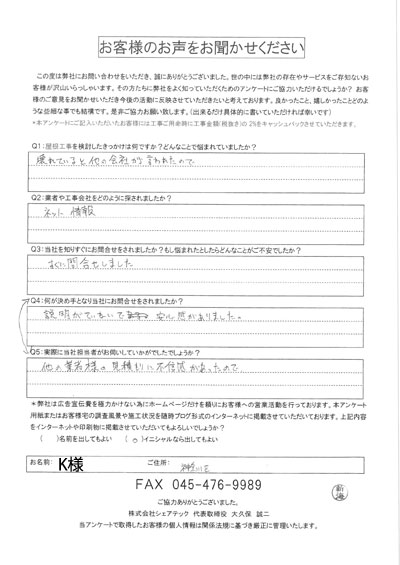 お客様のお声をお聞かせください
この度は弊社にお問い合わせをいただき、誠にありがとうございました。世の中には弊社の存在やサービスをご存知ないお
客様が沢山いらっしゃいます。その方たちに弊社をよく知っていただくためのアンケートにご協力いただけるでしょうか? お客
様のご意見をお聞かせいただき今後の活動に反映させていただきたいと考えております。良かったこと、嬉しかったことどのよ
うな些細な事でも結構です。是非ご協力お願い致します。(出来るだけ具体的に書いていただければ幸いです)
*本アンケートにご記入いただいたお客様には工事ご用命時に工事金額(税抜き)の 2%をキャッシュバックさせていただきます。
Q1:屋根工事を検討したきっかけは何ですか?どんなことで悩まれていましたか?
壊れていると他の会社が言われたので
Q2:業者や工事会社をどのように探されましたか?
ネット情報
Q3:当社を知りすぐにお問合せをされましたか?もし悩まれたとしたらどんなことがご不安でしたか?
すぐに問合せしました
Q4:何が決め手となり当社にお問合せをされましたか?
説明がていねいで 安心感がありました。
Q5:実際に当社担当者がお伺いしていかがでしたでしょうか?
他の業者様の見積りに不信感があったので
*弊社は広告宣伝費を極力かけない為にホームページだけを頼りにお客様への営業活動を行っております。本アンケート
用紙またはお客様宅の調査風景や施工状況を随時ブログ形式のインターネットに掲載させていただいております。上記内容
をインターネットや印刷物に掲載させていただいてもよろしいでしょうか?
( )名前を出してもよい (○)イニシャルなら出してもよい
お名前: K様 ご住所: 神奈川区
FAX 045-476-9989
ご協力ありがとうございました。
株式会社シェアテック 代表取締役 大久保 誠二
当アンケートで取得したお客様の個人情報は関係法規に基づき厳正に管理いたします。